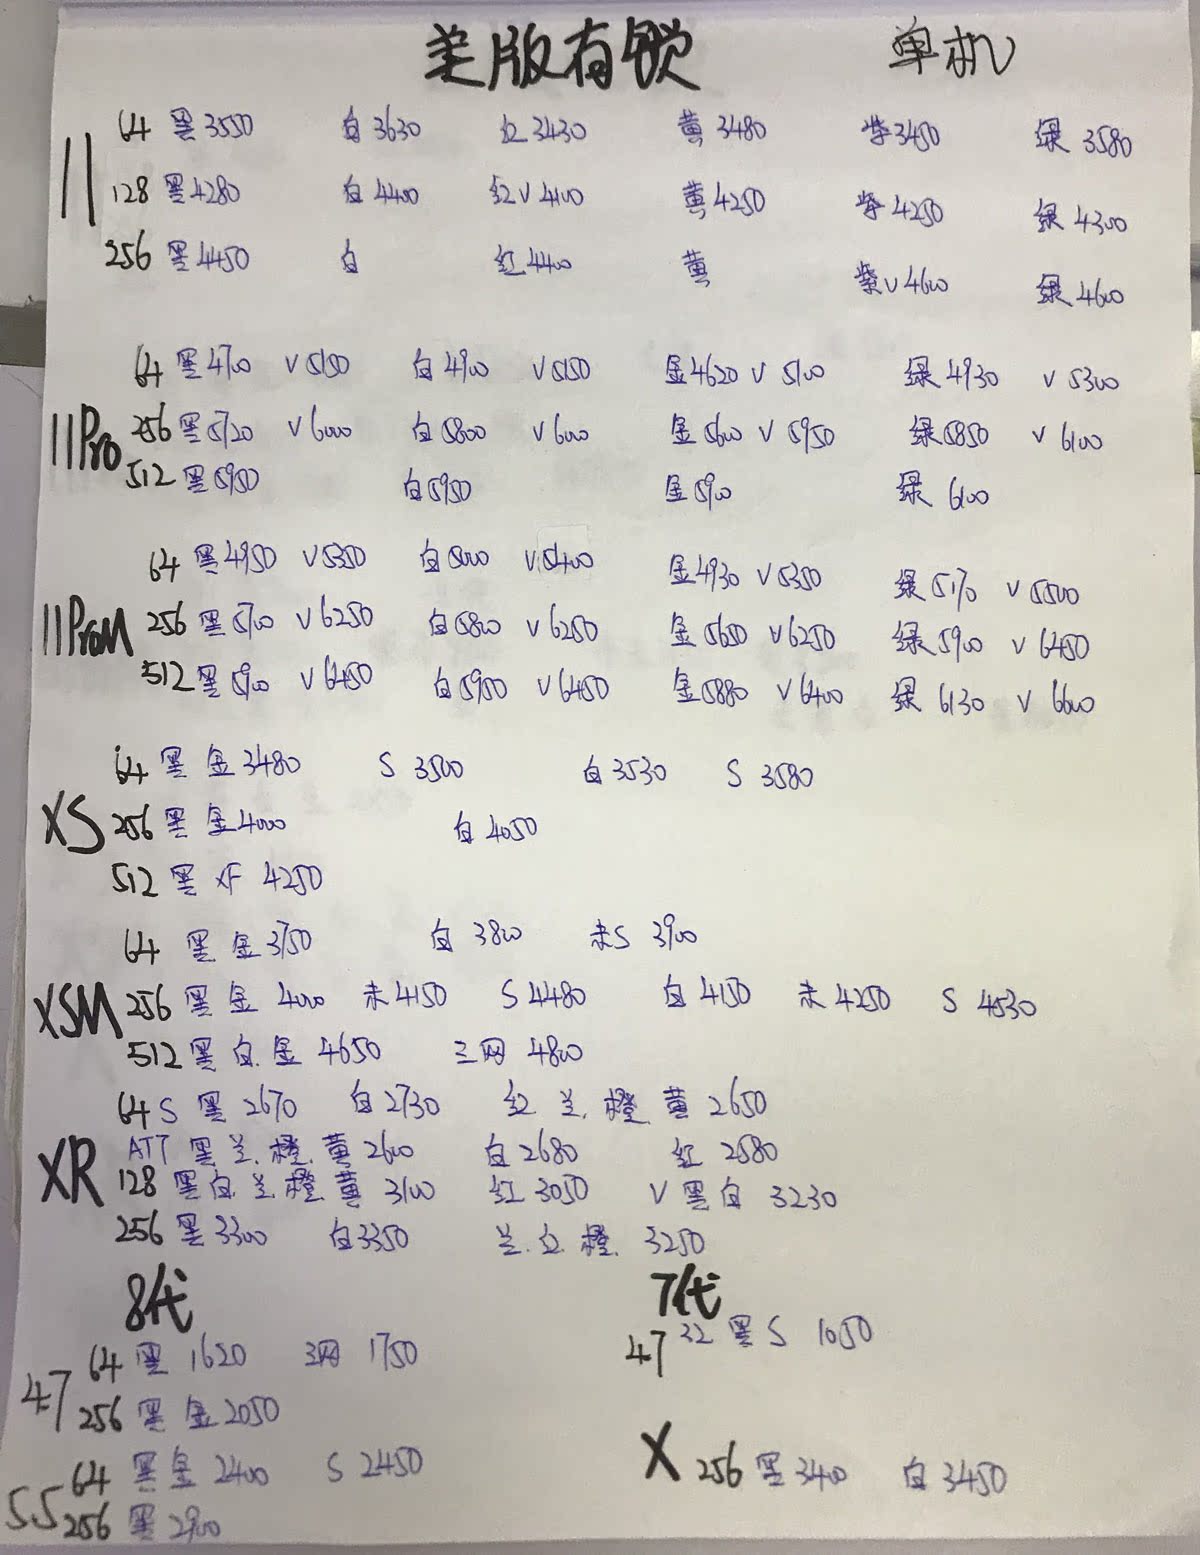 美版有锁 单机
11
64 黑3550 白3630 红3430 黄3480 紫3450 绿3580
128 黑4280 白4400 红V4100 黄4250 紫4250 绿4300
256 黑4450 白 红4400 黄 紫V4600 绿4600
11Pro
64 黑4700 V5150 白4900 V5150 金4620 V5100 绿4930 V5300
256 黑5720 V6000 白5800 V6000 金5600 V5950 绿5850 V6100
512 黑5950 白5950 金5900 绿6100
11ProM
64 黑4950 V5350 白5000 V5400 金4930 V5350 绿5170 V5500
256 黑5700 V6250 白5800 V6250 金5650 V6250 绿5900 V6450
512 黑5900 V6450 白5950 V6450 金5880 V6400 绿6130 V6600
XS
64 黑金3480 S 3500 白3530 S 3580
256 黑金4000 白4050
512 黑 XF 4250
XSM
64 黑金3750 白3800 未S 3900
256 黑金4000 未4150 S4480 白4150 未4250 S4530
512 黑白.金4650 三网4800
XR
64 S 黑2670 白2730 红兰.橙黄2650
AT7 黑兰.橙.黄2600 白2680 红2580
128 黑白.兰橙黄3100 红3050 V黑白3230
256 黑3300 白3350 兰.红.橙.3250
8代 7代
47
64 黑1620 三网1750
256 黑金2050
47 32 黑S 1050
55
64 黑金2400 S2450
256 黑2900
X 256 黑3400 白3450